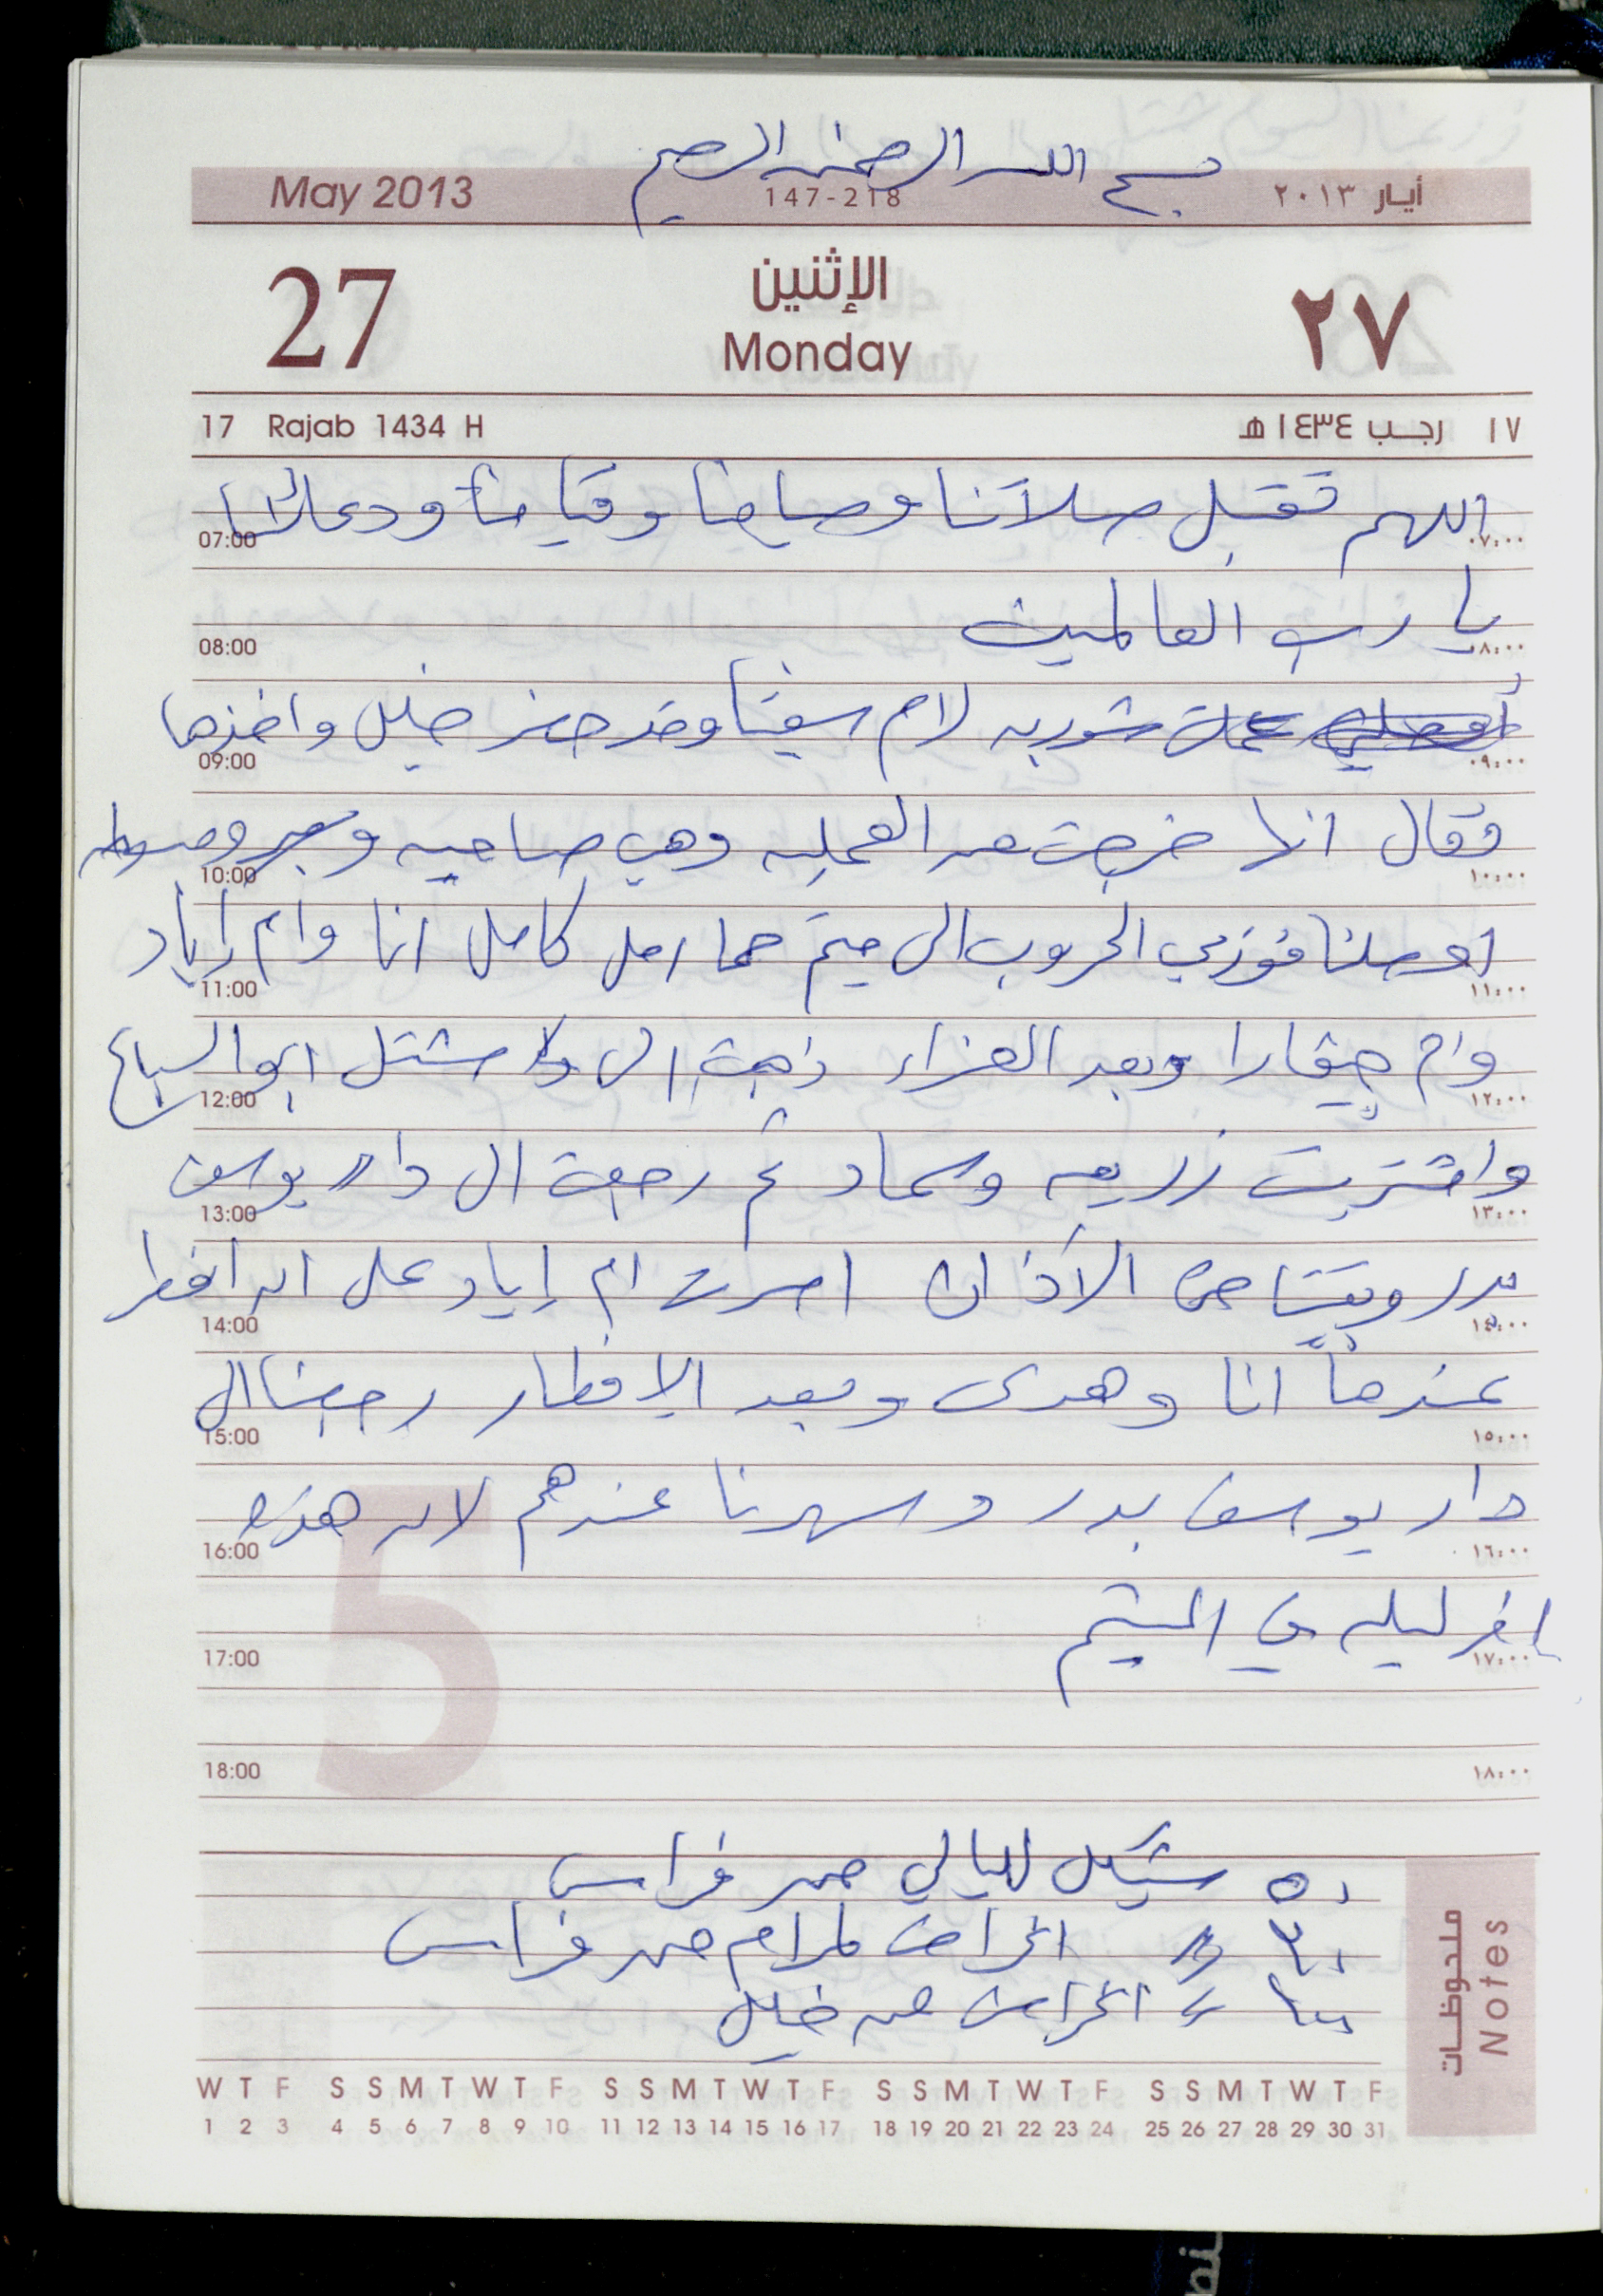 بسم الله الرحمن الرحيم
May 2013 147-218 أيـار ٢٠١٣
27 الإثنين ٢٧
Monday
17 Rajab 1434 H ١٧ رجـب ١٤٣٤ هـ
اللهم تقبل صلاتنا وصيامنا وقيامنا ودعائنا
07:00 ٠٧:٠٠
يا رب العالمين
08:00 ٠٨:٠٠
عملت شوربه لام شفيقا وقد حضر خليل واخذها
09:00 ٠٩:٠٠
فقال انها خرجت من العمليه وهي صاحيه
10:00 ١٠:٠٠
اوصلنا فوزي الخروب الى ميتم حما امل كامل انا وام إياد
11:00 ١١:٠٠
وام وبعد العزاء ذهبت الى مشتل ابو السباع
12:00 ١٢:٠٠
واشتريت زريعه وسماد ثم رجعت الى دار يوسف
13:00 ١٣:٠٠
بدر وبقينا حتى الأذان اصرت ام إياد على ان افطر
14:00 ١٤:٠٠
عندها انا وهدى وبعد الإفطار رجعنا الى
15:00 ١٥:٠٠
دار يوسف بدر وسهرنا عندهم لان هذه
16:00 ١٦:٠٠
اخر ليله في الميتم
17:00 ١٧:٠٠
18:00 ١٨:٠٠
٥٠ شيكل لليالي من فراس
٣٠ " اكرامت لمرام من فراس
" اكرامت من خليل
ملحوظـات
Notes
W T F S S M T W T F S S M T W T F S S M T W T F S S M T W T F
1 2 3 4 5 6 7 8 9 10 11 12 13 14 15 16 17 18 19 20 21 22 23 24 25 26 27 28 29 30 31
5